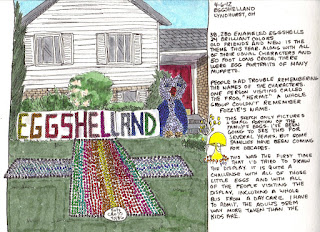 4-6-12
EGGSHELLAND
LYNDHURST, OH
EGGSHELLAND
30,280 ENAMELED EGGSHELLS
24 BRILLIANT COLORS
OLD FRIENDS AND NEW IS THE
THEME THIS YEAR. ALONG WITH ALL
OF THEIR USUAL CHARACTERS AND
50 FOOT LONG CROSS, THERE
WERE EGG PORTRAITS OF MANY
MUPPETS.
PEOPLE HAD TROUBLE REMEMBERING
THE NAMES OF THE CHARACTERS.
ONE PERSON VISITING CALLED
THE FROG, "HERMIE." A WHOLE
GROUP COULDN'T REMEMBER
FOZZIE'S NAME.
THIS SKETCH ONLY PICTURES
A SMALL PORTION OF THE
FAMILY'S EGGS. I'VE BEEN
GOING TO SEE THIS FOR
SEVERAL YEARS, BUT SOME
FAMILIES HAVE BEEN COMING
FOR DECADES.
THIS WAS THE FIRST TIME
THAT I'D TRIED TO DRAW
THE DISPLAY. IT IS QUITE A
CHALLENGE WITH ALL OF THOSE
LITTLE EGGS AND WITH ALL
OF THE PEOPLE VISITING THE
DISPLAY, INCLUDING A WHOLE
BUS FROM A DAYCARE. I HAVE
TO ADMIT, THE ADULTS SEEM
WAY MORE TAKEN THAN THE
KIDS ARE.